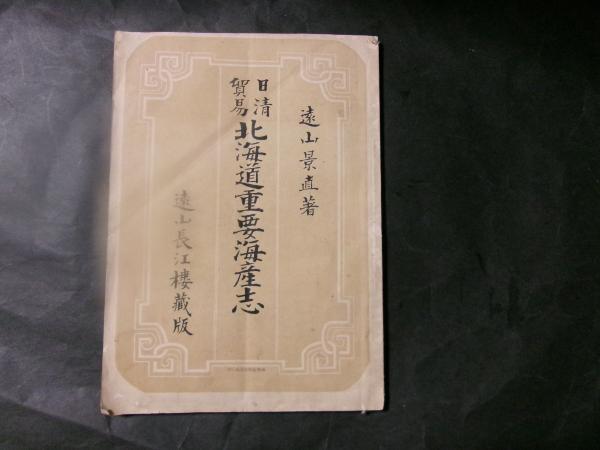 遠山景直著
日清
貿易
北海道重要海産志
遠山長江樓藏版